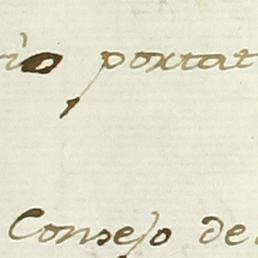 rio portat
Consejo de